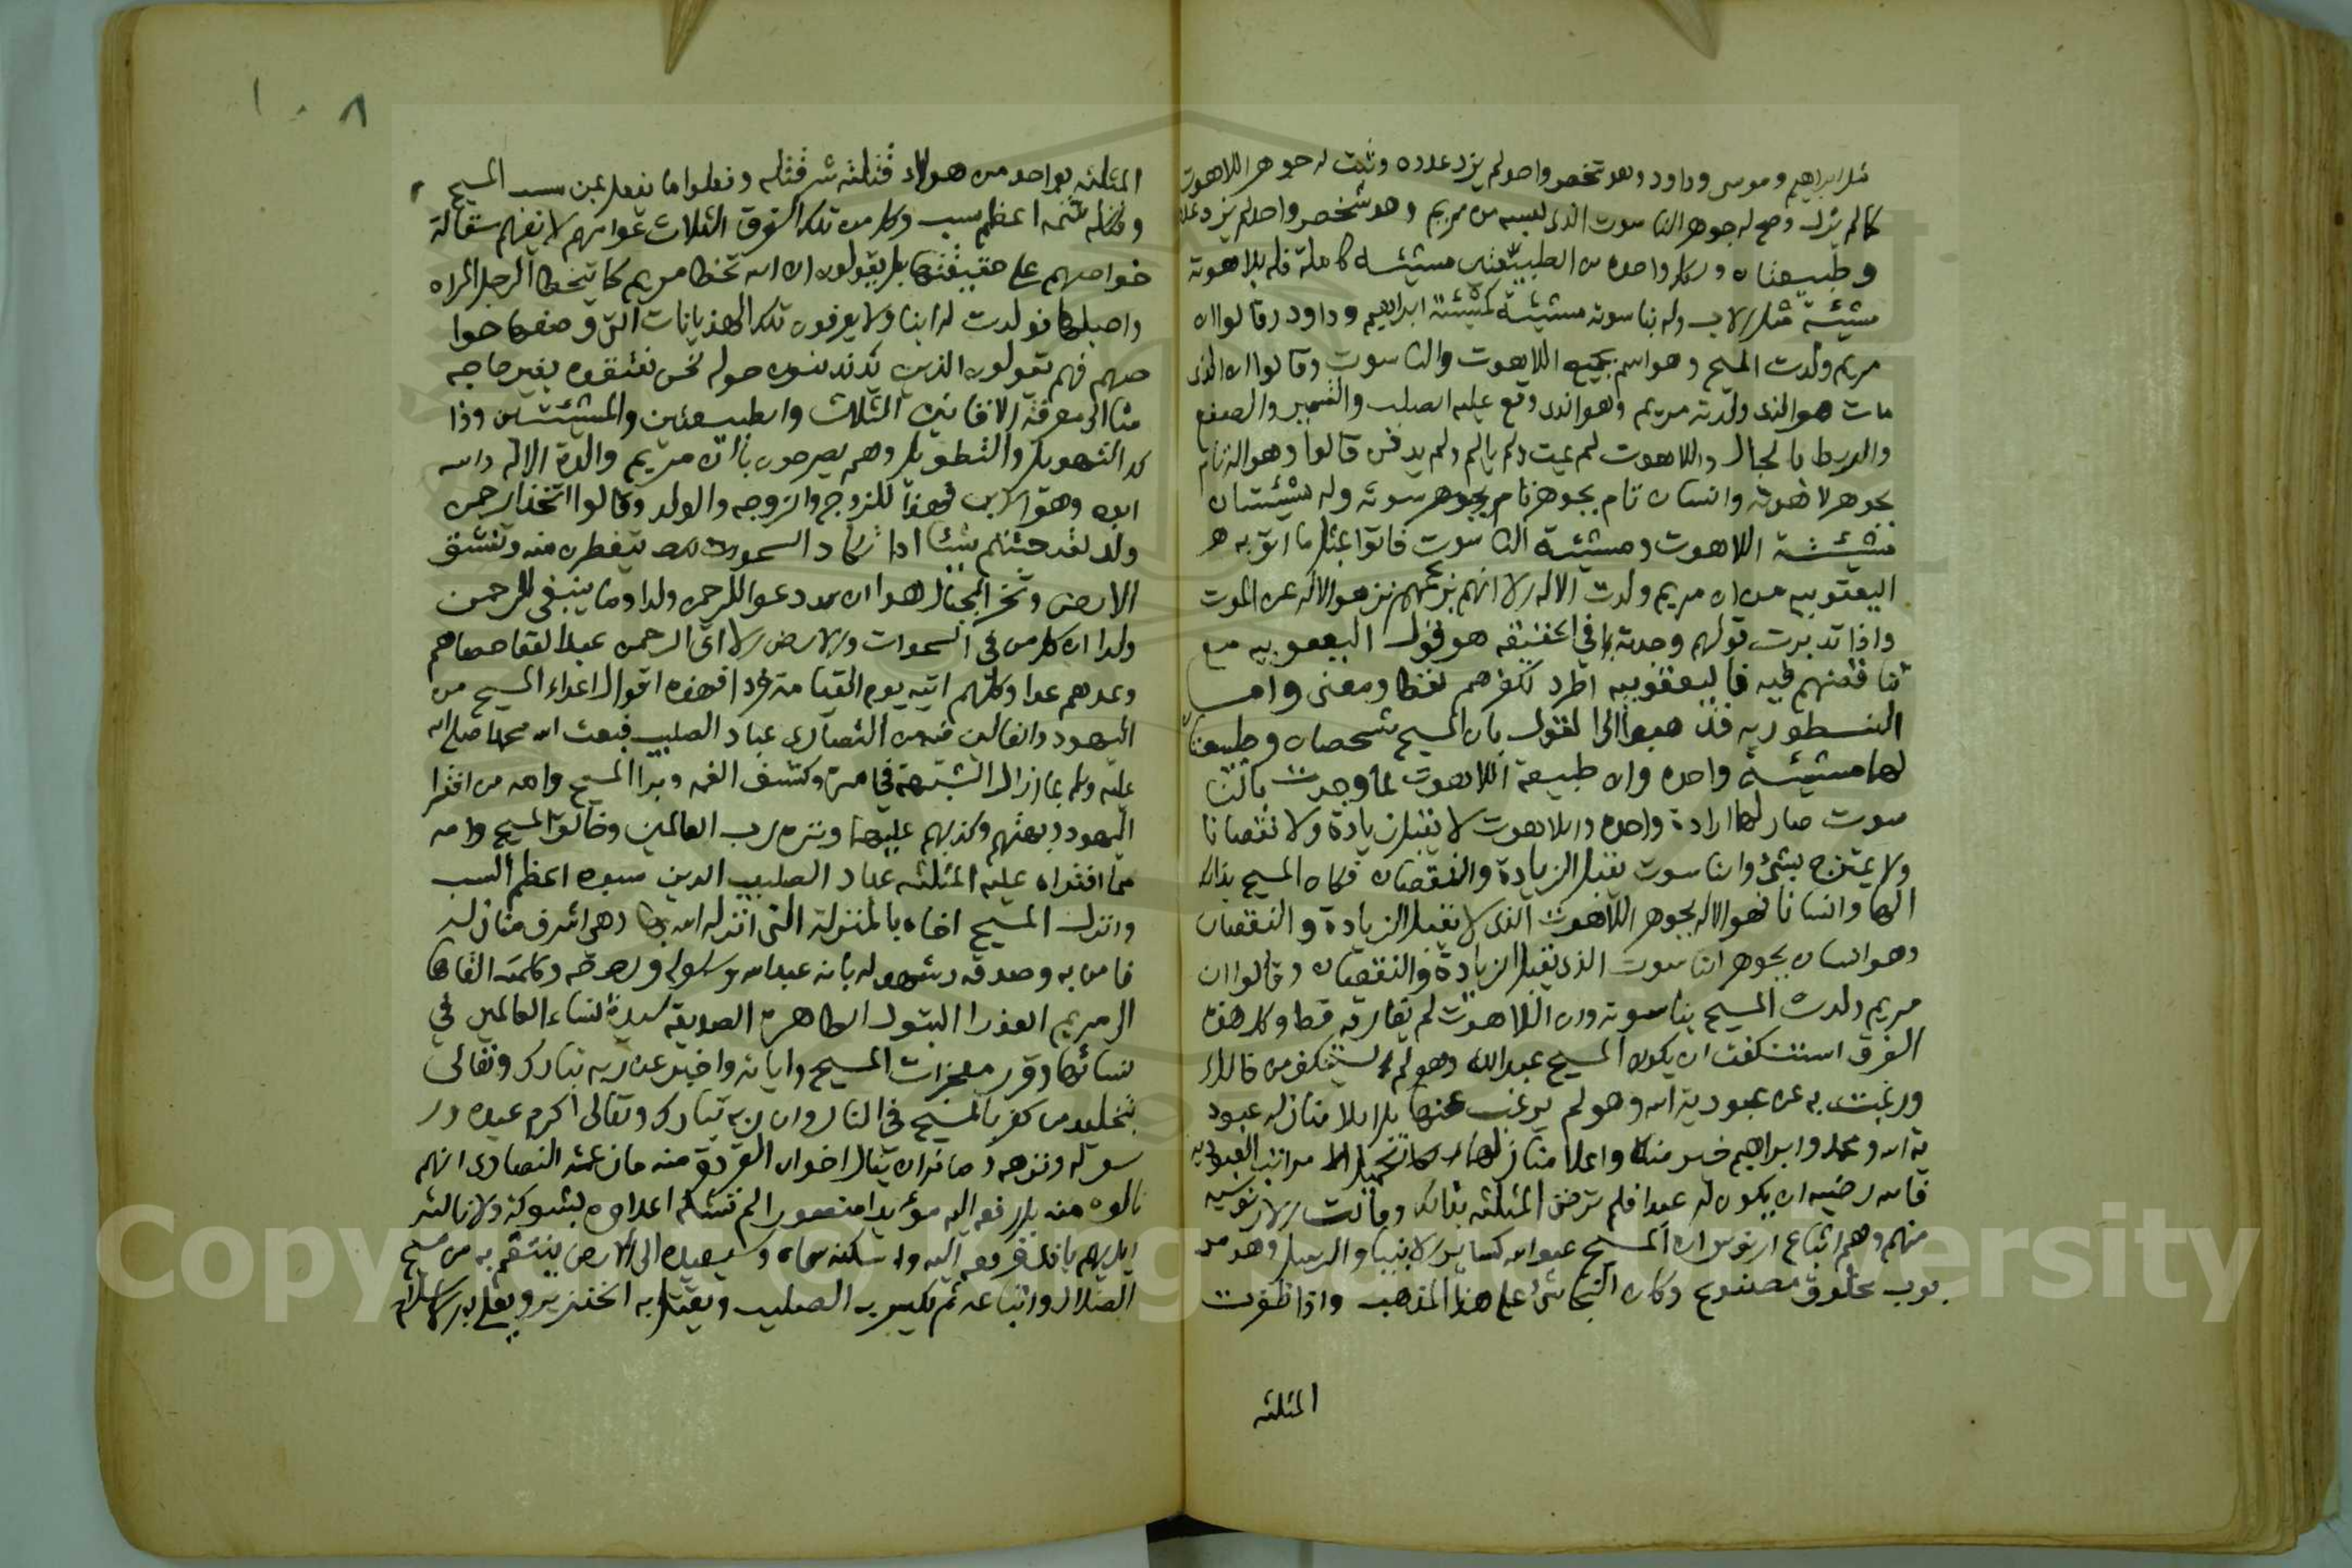 مثل ابراهيم وموسى وداود وهو شخص واحد لم يزد عدده وثبت له جوهر اللاهوت
كما لم يزل وصح له جوهر الناسوت الذي لبسه من مريم وهو شخص واحد لم يزد عدده
وطبيعتان ولكل واحده من الطبيعتين مشيئه كاملة فله بلاهوته
مشيئة مثل الاب وله بناسوته مشيئة كمشيئة ابراهيم وداود وقالوا ان
مريم ولدت المسيح وهو اسم يجمع اللاهوت والناسوت وقالوا ان الذي
مات هو الذي ولدته مريم وهو الذي وقع عليه الصلب والتسمير والصفع
والربط بالحبال واللاهوت لم يمت ولم يالم ولم يدفن قالوا وهو اله تام
بجوهر لاهوته وانسان تام بجوهر تام بجوهر سوته وله مشيئتان
مشيئة اللاهوت ومشيئة الناسوت فاتوا بمثل ما اتو به
اليعقوبيه من ان مريم ولدت الاله الا انهم بزعمهم نزهوا الاله عن الموت
واذا تدبرت قولهم وجدته في الحقيقه هو قول اليعقوبيه مع
تناقضهم فيه فاليعقوبيه اطرد لكفرهم لفظا ومعنى واما
النسطوريه فذهبوا الى القول بان المسيح شخصان وطبيعتان
لهما مشيئة واحده وان طبيعة اللاهوت لما وجدت بالنا
سوت صار لهما ارادة واحده واللاهوت لا يقبل زيادة ولا نقصانا
ولا يمتزج بشئ والناسوت يقبل الزيادة والنقصان فكان المسيح بذلك
الها وانسانا فهو الاله بجوهر اللاهوت الذي لا يقبل الزيادة والنقصان
وهو انسان بجوهر الناسوت الذي يقبل الزيادة والنقصان وقالوا ان
مريم ولدت المسيح بناسوته وان اللاهوت لم يفارقه قط وكل هذه
الفرق استنكفت ان يكون المسيح عبد الله وهو لم يستنكف من ذلك
ورغبت به عن عبودية الله وهو لم يرغب عنها بل اعلا منازله عبود
ية الله ومحمد وابراهيم خير منه واعلا منازلهما تكميل مراتب العبوديه
فالله رضيه ان يكون له عبدا فلم ترض المثلثه بذلك وقالت الاريوسيه
منهم وهم اتباع اريوس ان المسيح عبد الله كساير الانبيا والرسل وهو مر
بوب مخلوق مصنوع وكان النجاشي على هذا المذهب واذا ظفرت
المثلثه
المثلثه بواحد من هولاء قتلته شر قتله وفعلوا به ما يفعل بمن سب المسيح
وشتمه اعظم سب وكل من تلك الفرق الثلاث عوامهم لا يفهم مقالة
خواصهم على حقيقتها بل يقولون ان الله تخطا مريم كما يتخطا الرجل المراه
واحبلها فولدت له ابنا ولا يعرفون تلك الهذيانات التي وضعها خوا
صهم فهم يقولون الذين يدندنون حوله نحن نعتقده بغير حاجه
منا الى معرفة الاقانيم الثلاث والطبيعتين والمشيئتين وذا
كد التهويل والتطويل وهم يصرحون بان مريم والدة الاله والله
ابوه وهو الابن فهذا الزوج والزوجه والولد وقالوا اتخذ الرحمن
ولدا لقد جئتم شيئا ادا تكاد السموات يتفطرن منه وتنشق
الارض وتخر الجبال هدا ان دعوا للرحمن ولدا وما ينبغي للرحمن
ولدا ان كل من في السموات والارض الا اتى الرحمن عبدا لقد احصاهم
وعدهم عدا وكلهم اتيه يوم القيامة فردا فهذه اقوال اعداء المسيح من
اليهود والغالين فيه من النصارى عباد الصليب فبعث الله محمدا صلى الله
عليه وسلم بما ازال الشبهة في امره وكشف الغمه وبرا المسيح وامه من افترا
اليهود وبهتهم وكذبهم عليهما ونزه رب العالمين وخالق المسيح وامه
مما افتراه عليه المثلثه عباد الصليب الذين سبوه اعظم السب
وانزل المسيح اخاه بالمنزلة التي انزله الله بها وهي اشرف منازله
فامن به وصدقه وشهد له بانه عبد الله ورسوله وروحه وكلمته القاها
الى مريم العذرا البتول الطاهرة الصديقه سيدة نساء العالمين في
نسائها وقرر معجزات المسيح واياته واخبر عن ربه تبارك وتعالى
بتخليد من كفر بالمسيح في النار وان ربه تبارك وتعالى اكرم عبده ور
سوله ونزهه وصانه ان ينال اخوان القردة منه ما زعمته النصارى انهم
نالوه منه بل رفعه اليه مؤيدا منصورا لم تشكه اعداوه بشوكة ولا نالته
ايديهم باذى فرفعه اليه واسكنه سماه وسيعيده الى الارض ينتقم به من مسيح
الضلال واتباعه ثم يكسر به الصليب ويقتل به الخنزير ويعلي به الاسلام
١٠٨
Copyright © King Saud University